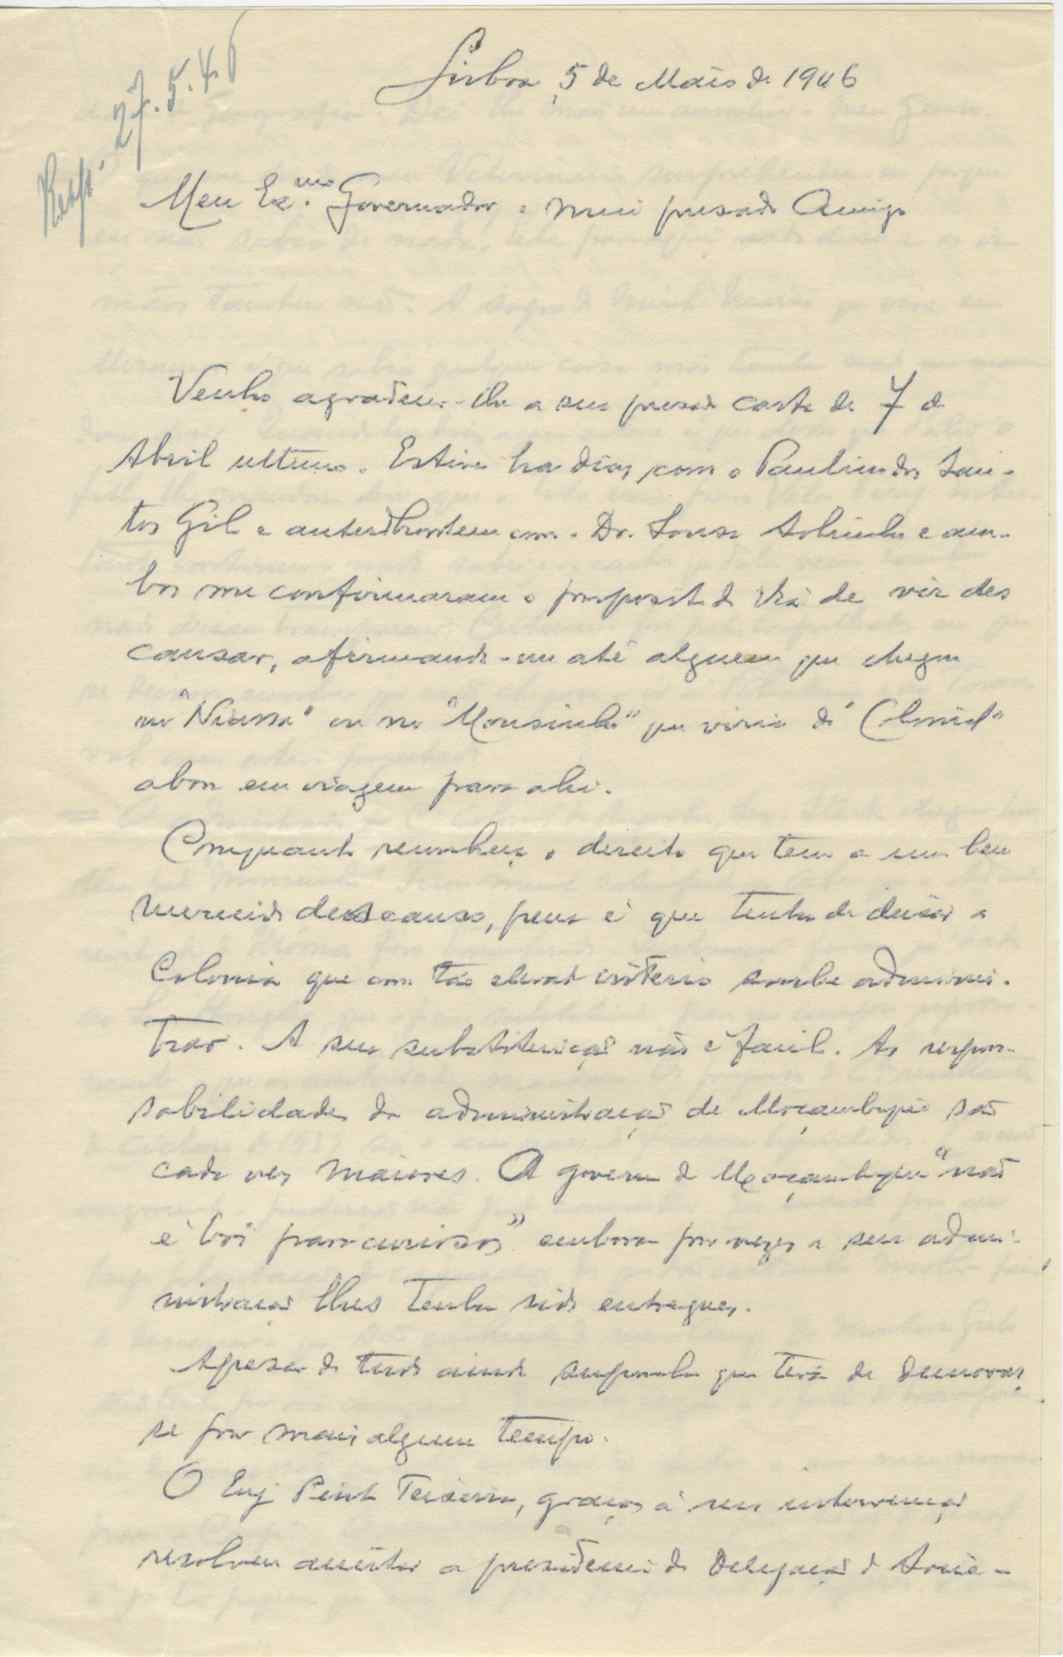 Resp. 27.5.46
Lisboa, 5 de Maio de 1946
Meu Ex.mo Governador e meu presado Amigo
Venho agradecer-lhe a sua presada carta de 7 de
Abril ultimo. Estive ha dias com o Paulino dos San-
tos Gil e antes d'hontem com o Dr. Sousa Sobrinho e am-
bos me confirmaram o proposito de V.Exª de vir des
cansar, afirmando-me até alguem que chegou
no "Niassa" ou no "Mousinho" que viria do "Colonial"
abon em viagem para ahi.
Comquanto reconheça o direito que tem a um bem
merecido descanso, pena é que tenha de deixar a
Colonia que com tão elevado critério soube adminis-
trar. A sua substituição não é facil. As respon-
sabilidades da administração de Moçambique são
cada vez maiores. O governo de Moçambique "não
é boi para curiosos" embora por vezes a sua admi-
nistração lhes tenha sido entregue.
Apesar de tudo ainda suponho que terá de demorar-
se por mais algum tempo.
O Eng Pinto Teixeira, graças á sua intervenção
resolveu aceitar a presidencia da Delegação d